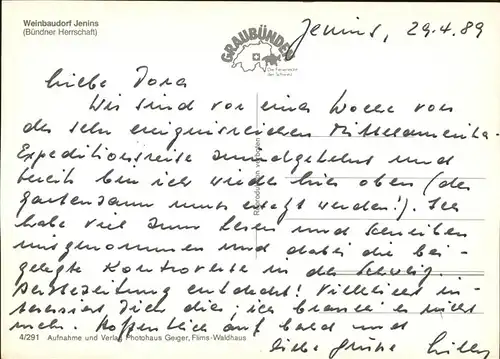 Weinbaudorf Jenins
(Bündner Herrschaft)
GRAUBÜNDEN
Die Ferienecke
der Schweiz
Jenins, 29.4.89
Liebe Dora
Wir sind vor einer Woche von
der sehr ereignisreichen Mittelamerika-
Expeditionsreise zurückgekehrt und
bereits bin ich wieder hier oben (der
Gartenzaun muss ersetzt werden!). Ich
habe viel zum Lesen und Schreiben
mitgenommen und dabei die bei-
gelegte Kontroverse in der Schweiz.
Aerztezeitung entdeckt! Vielleicht in-
teressiert Dich dies; ich brauche es nicht
mehr. Hoffentlich auf bald und
liebe Grüsse
Reproduktion verboten
4/291 Aufnahme und Verlag Photohaus Geiger, Flims-Waldhaus